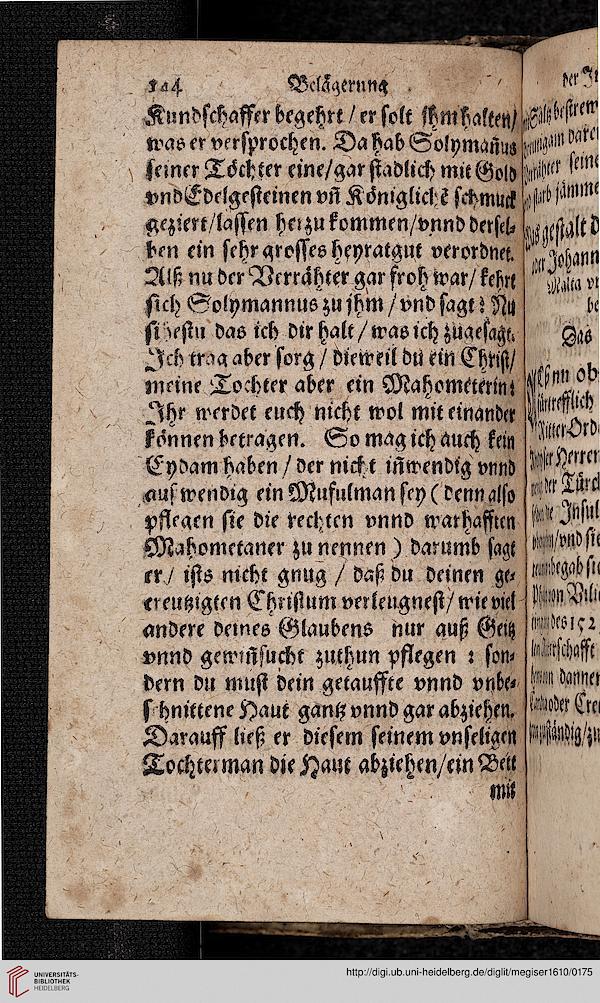 144 Belägerung
Kundschaffer begehrt / er solt jhm halten /
was er versprochen. Da hab Solymañus
seiner Töchter eine / gar stadlich mit Gold
vnd Edelgesteinen vñ Königlichẽ schmuck
geziert / lassen herzu kommen / vnnd dersel-
ben ein sehr grosses heyratgut verordnet.
Alß nu der Verrähter gar froh war / kehrt
sich Solymannus zu jhm / vnd sagt: Nu
sihestu das ich dir halt / was ich zugesagt.
Ich trag aber sorg / dieweil du ein Christ /
meine Tochter aber ein Mahometerin:
Ihr werdet euch nicht wol mit einander
können betragen. So mag ich auch kein
Eydam haben / der nicht iñwendig vnnd
außwendig ein Musulman sey ( denn also
pflegen sie die rechten vnnd warhafften
Mahometaner zu nennen ) darumb sagt
er / ists nicht gnug / daß du deinen ge-
creutzigten Christum verleugnest / wie viel
andere deines Glaubens nur auß Geitz
vnnd gewiñsucht zuthun pflegen : son-
dern du must dein getauffte vnnd vnbe-
schnittene Haut gantz vnnd gar abziehen.
Darauff ließ er diesem seinem vnseligen
Tochterman die Haut abziehen / ein Bett
mit
der
Johann
Malta
Das
ob
Ritter Ord
Herren
der Türck
Insul
vnd sie
des 152
oder
UNIVERSITÄTS-
BIBLIOTHEK
HEIDELBERG
http://digi.ub.uni-heidelberg.de/diglit/megiser1610/0175